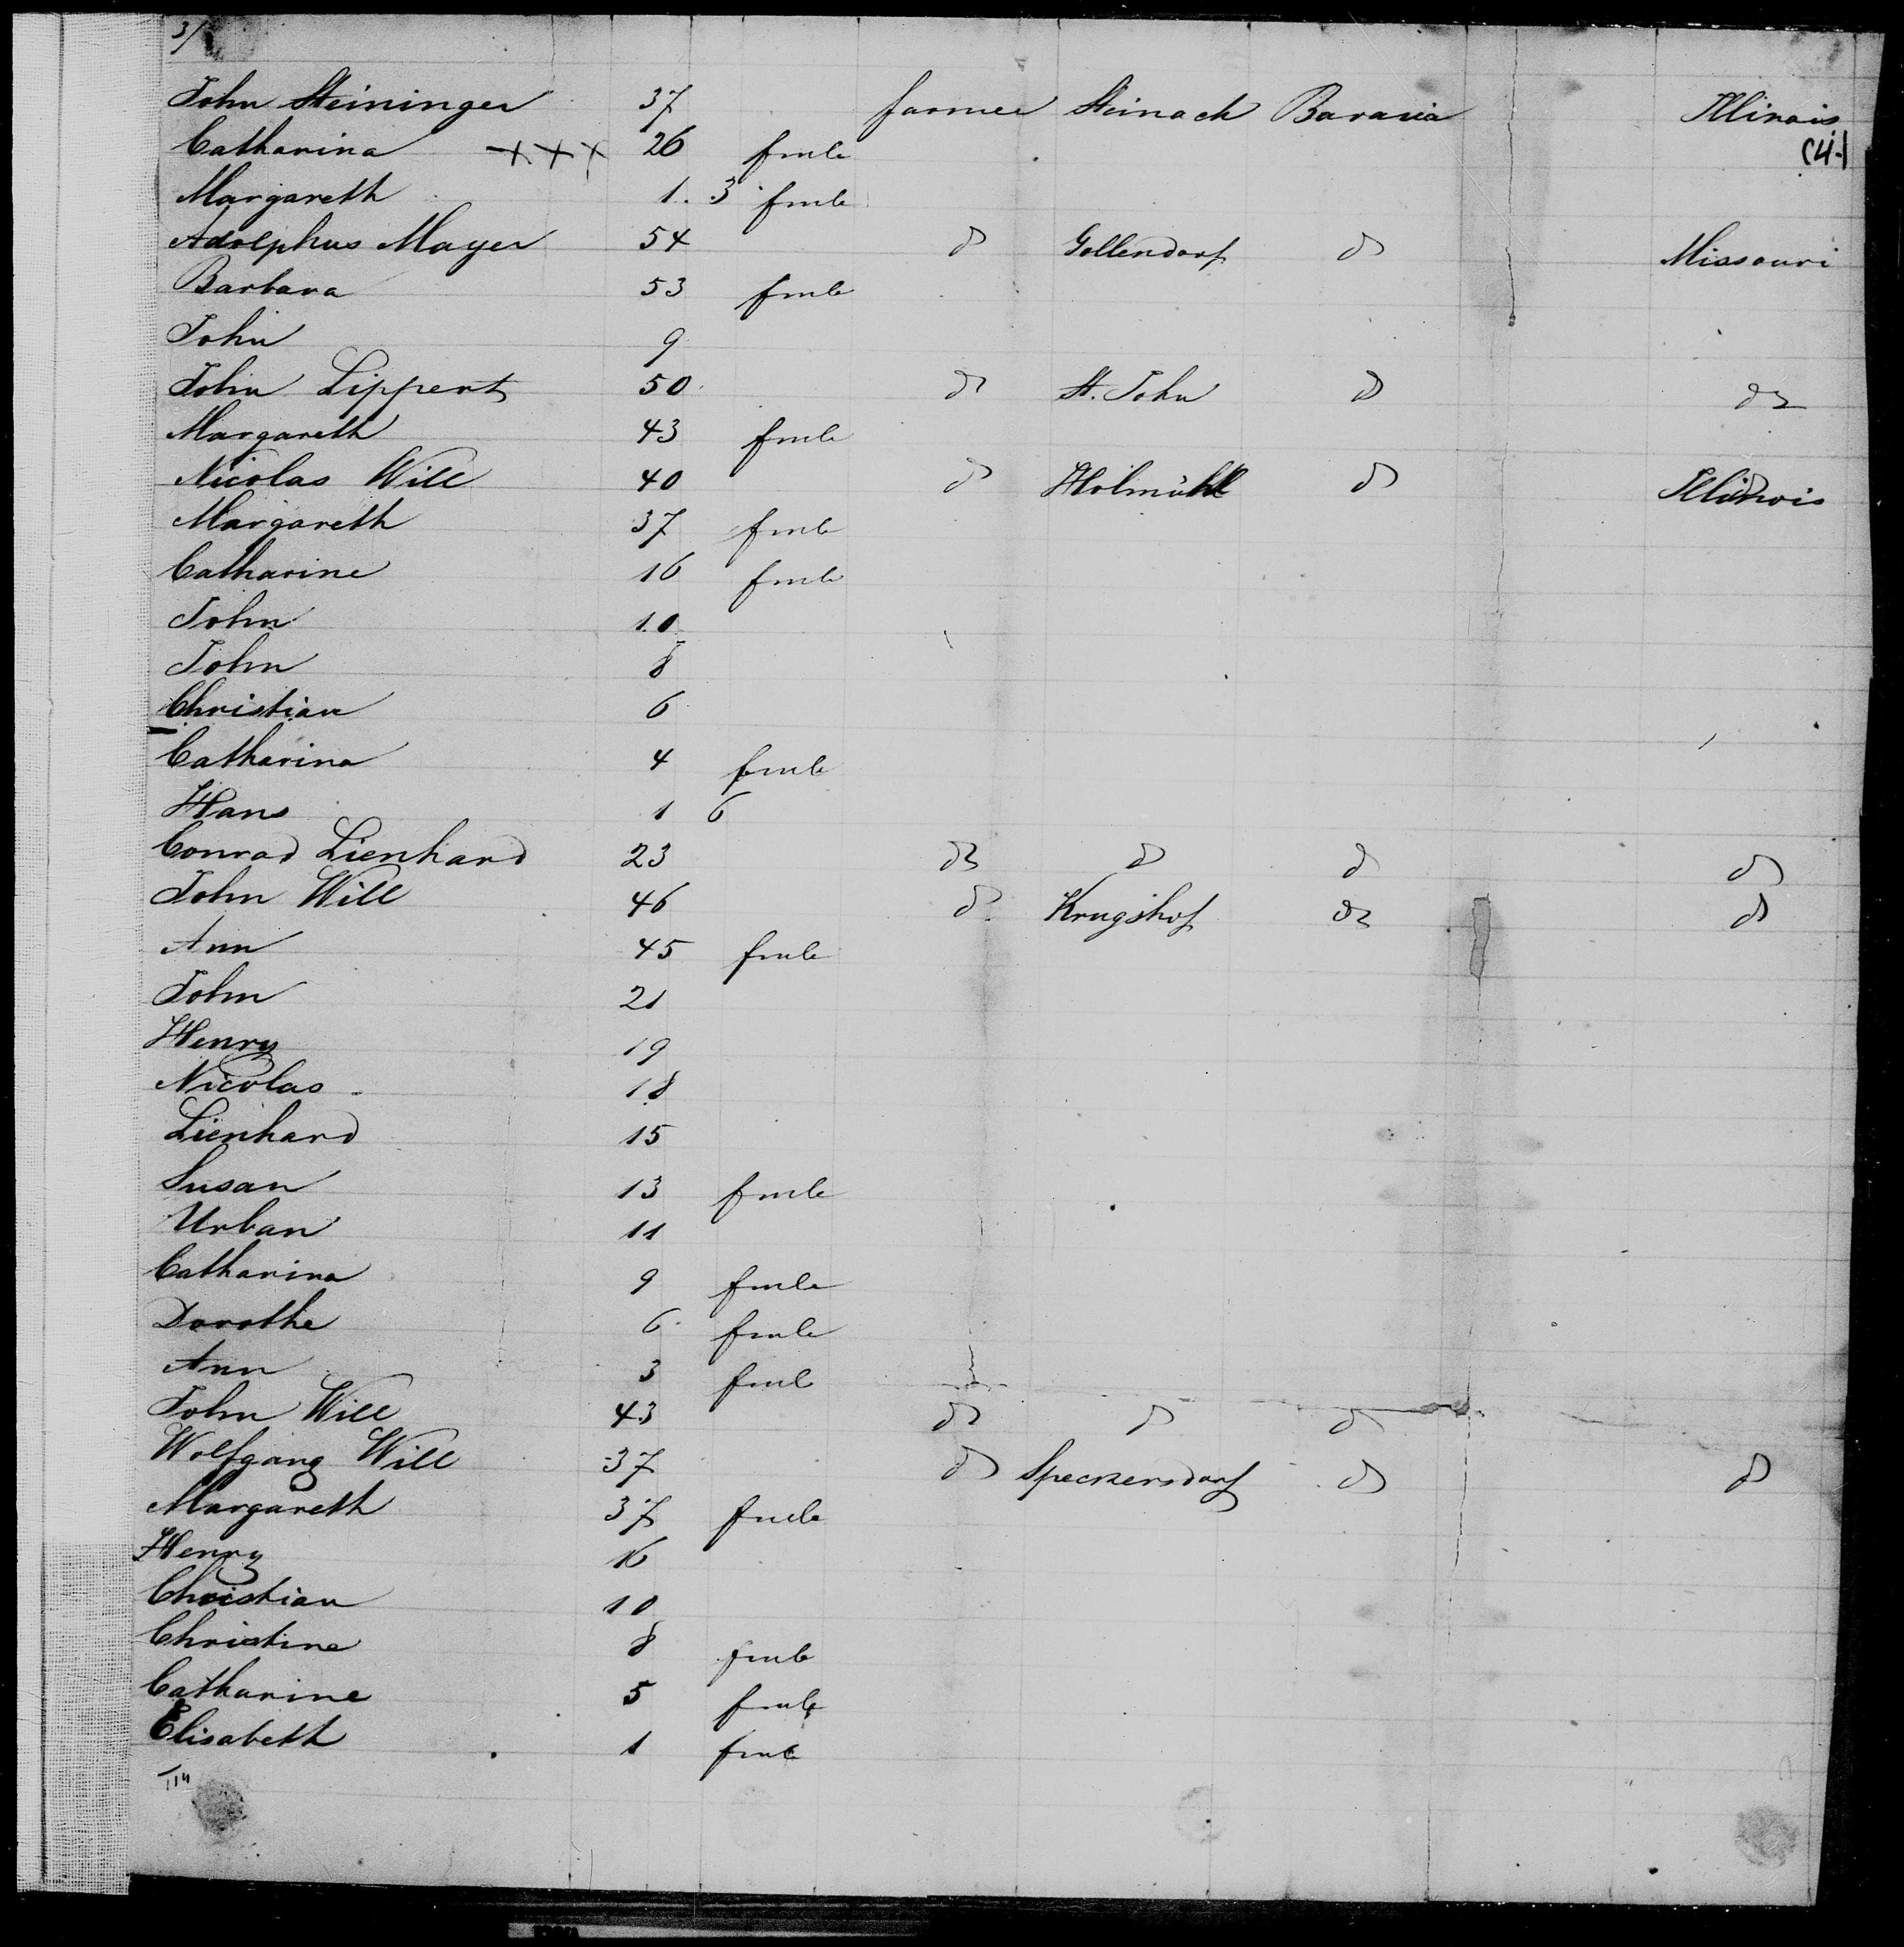 3/
John Steininger 37 farmer Steinach Bavaria Illinois
Catharina +++ 26 fmle (4-)
Margareth 1. 3 fmle
Adolphus Mayer 54 do Gollendorf do Missouri
Barbara 53 fmle
John 9
John Lippert 50 do St. John do do
Margareth 43 fmle
Nicolas Will 40 do Holmühl do Illinois
Margareth 37 fmle
Catharine 16 fmle
John 10
John 8
Christian 6
Catharina 4 fmle
Hans 1 6
Conrad Lienhard 23 do do do do
John Will 46 do Krugshof do do
Ann 45 fmle
John 21
Henry 19
Nicolas 18
Lienhard 15
Susan 13 fmle
Urban 11
Catharina 9 fmle
Dorothe 6 fmle
Ann 3 fmle
John Will 43 do do do
Wolfgang Will 37 do Speckersdorf do do
Margareth 37 fmle
Henry 16
Christian 10
Christine 8 fmle
Catharine 5 fmle
Elisabeth 1 fmle
114